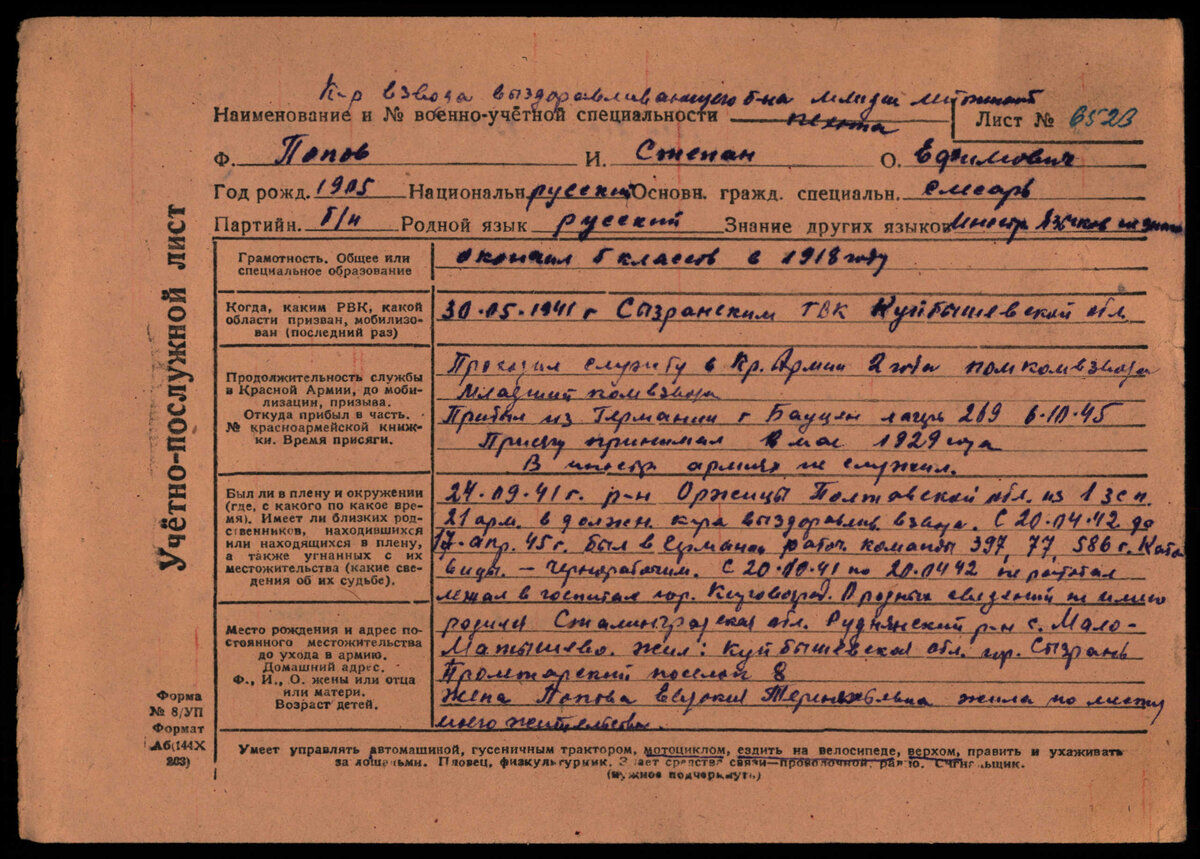 К-р взвода выздоравливающего б-на младш лейтенант
Наименование и № военно-учётной специальности пехота
Лист № 6523
Ф. Попов И. Степан О. Ефимович
Год рожд. 1905 Национальн русский Основн. гражд. специальн. слесарь
Партийн. б/п Родной язык русский Знание других языков Иностр языков не знаю
Учётно-послужной лист
Грамотность. Общее или
специальное образование
окончил 5 классов в 1918 году
Когда, каким РВК, какой
области призван, мобилизо-
ван (последний раз)
30.05.1941 г Сызранским ГВК Куйбышевской обл
Продолжительность службы
в Красной Армии, до моби-
лизации, призыва.
Откуда прибыл в часть.
№ красноармейской книж-
ки. Время присяги.
Проходил службу в Кр. Армии 2 года помкомвзвода
Младший комвзвода
Прибыл из Германии г Бауцен лагерь 269 6.10.45
Присягу принимал в мае 1929 года
В иностр армиях не служил.
Был ли в плену и окружении
(где, с какого по какое вре-
мя). Имеет ли близких род-
ственников, находившихся
или находящихся в плену,
а также угнанных с их
местожительства (какие све-
дения об их судьбе).
24.09.41 г. р-н Оржицы Полтавской обл. из 1 зсп.
21 арм. в должн. к-ра выздоравлив взвода. С 20.04.42 до
17 апр. 45 г. был в Германии рабоч. команды 397, 77, 586 г.
виды. – чернорабочим. С 20.10.41 по 20.04.42 не работал
лежал в госпитал гор. Кировоград. О родных сведений не имею
Место рождения и адрес по-
стоянного местожительства
до ухода в армию.
Домашний адрес.
Ф., И., О. жены или отца
или матери.
Возраст детей.
родился Сталинградская обл. Руднянский р-н с. Мало-
Матышево. жил: Куйбышевская обл. гор. Сызрань
поселок 8
жена Попова жила по месту
моего жительства.
Форма
№ 8/УП
Формат
А6(144Х
203)
Умеет управлять автомашиной, гусеничным трактором, мотоциклом, ездить на велосипеде, верхом, править и ухаживать
за лошадьми. Пловец, физкультурник. Знает средства связи—проволочной, радио. Сигнальщик.
(нужное подчеркнуть)